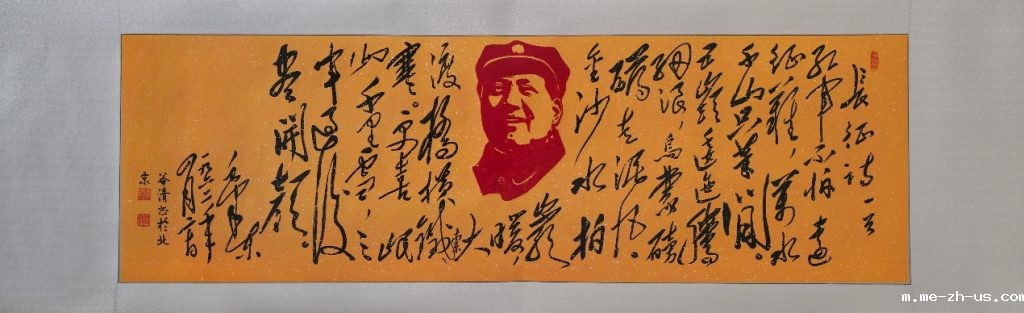 長征诗一首
红军不怕遠
征難，萬水
千山只等闲。
五嶺逶迤腾
细浪，烏蒙磅
礴走泥丸。
金沙水拍
雲崖
暖，
大
渡橋横鐵索
寒。更喜岷
山千里雪，三
军过後
尽開颜。
毛泽东
一九六二年
四月廿日
谷清书於北
京
m.me-zh-us.com